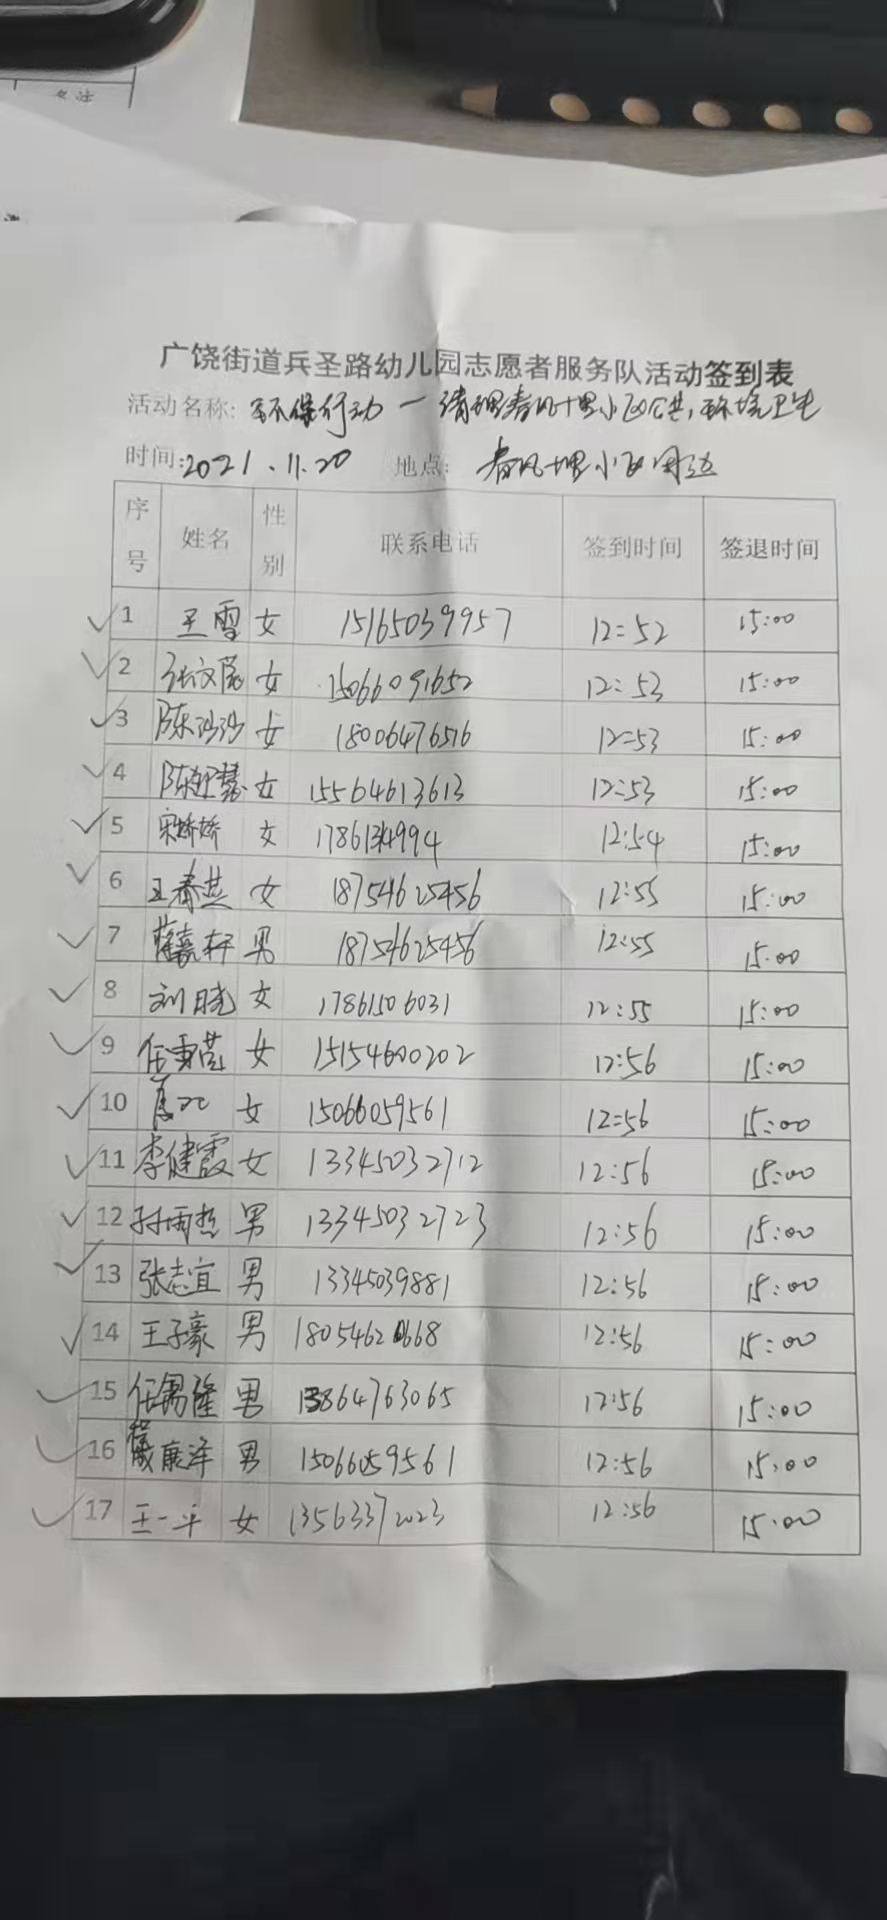 备注
广饶街道兵圣路幼儿园志愿者服务队活动签到表
活动名称: 环保行动一清理春风十里小区公共环境卫生
时间:2021.11.20 地点: 春风十里小区周边
序号 姓名 性别 联系电话 签到时间 签退时间
1 王雪 女 15165039957 12:52 15:00
2 张文 女 15066091652 12:53 15:00
3 陈沙沙 女 18006476516 12:53 15:00
4 陈 慧 女 15564613613 12:53 15:00
5 宋娇娇 女 12:54 15:00
6 王春燕 女 18754625456 12:55 15:00
7 蒋嘉轩 男 18754625456 12:55 15:00
8 刘晓 女 17861506031 12:55 15:00
9 任 女 15154600202 12:56 15:00
10 女 15066059561 12:56 15:00
11 李健霞 女 13345032712 12:56 15:00
12 孙雨 男 13345032723 12:56 15:00
13 张志宜 男 13345039881 12:56 15:00
14 王子豪 男 12:56 15:00
15 任 隆 男 13864763065 12:56 15:00
16 康泽 男 15066059561 12:56 15:00
17 王一平 女 13563372023 12:56 15:00